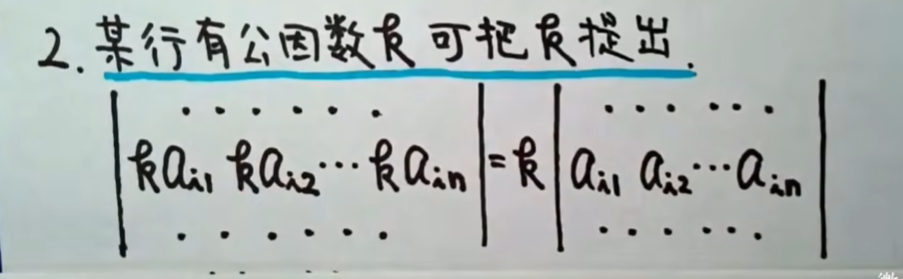 2. 某行有公因数k可把k提出.
| · · · · · · | = k | · · · · · · |
| ka_{i1} ka_{i2} ··· ka_{in} | = k | a_{i1} a_{i2} ··· a_{in} |
| · · · · · · | | · · · · · · |